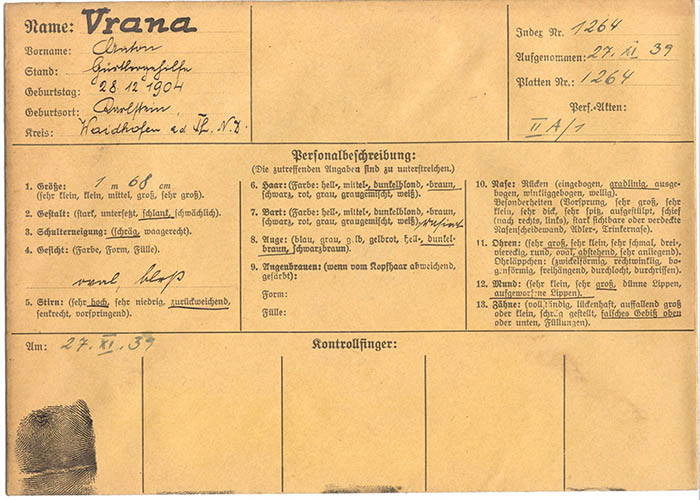 Name: Vrana
Vorname: Anton
Stand: Gürtlergehilfe
Geburtstag: 28 12 1904
Geburtsort: Karlstein
Kreis: Waidhofen a d Th. N. D.
Index Nr. 1264
Aufgenommen: 27. XI 39
Platten Nr.: 1264
Pers.-Akten:
II A/1
Personalbeschreibung:
(Die zutreffenden Angaben sind zu unterstreichen.)
1. Größe: 1 m 68 cm
(sehr klein, klein, mittel, groß, sehr groß).
2. Gestalt: (stark, untersetzt, schlank, schwächlich).
3. Schulterneigung: (schräg, waagerecht).
4. Gesicht: (Farbe, Form, Fülle).
oval, blaß
5. Stirn: (sehr hoch, sehr niedrig, zurückweichend,
senkrecht, vorspringend).
6. Haar: (Farbe: hell-, mittel-, dunkelblond, -braun,
schwarz, rot, grau, graugemischt, weiß).
7. Bart: (Farbe: hell-, mittel-, dunkelblond, -braun,
schwarz, rot, grau, graugemischt, weiß)
8. Auge: (blau, grau, gelb, gelbrot, hell-, dunkel-
braun, schwarzbraun).
9. Augenbrauen: (wenn vom Kopfhaar abweichend,
gefärbt):
Form:
Fülle:
10. Nase: Rücken (eingebogen, gradlinig, ausge-
bogen, winkliggebogen, wellig).
Besonderheiten (Vorsprung, sehr groß, sehr
klein, sehr dick, sehr spitz, aufgestülpt, schief
(nach rechts, links), stark sichtbare oder verdeckte
Nasenscheidewand, Adler-, Trinkernase).
11. Ohren: (sehr groß, sehr klein, sehr schmal, drei-,
viereckig, rund, oval, abstehend, sehr anliegend).
Ohrläppchen: (zwickelförmig, rechtwinklig, bo-
genförmig, freihängend, durchlocht, durchrissen).
12. Mund: (sehr klein, sehr groß, dünne Lippen,
aufgeworfene Lippen).
13. Zähne: (vollständig, lückenhaft, auffallend groß
oder klein, schräg gestellt, falsches Gebiß oben
oder unten, Füllungen).
Am: 27. XI. 39
Kontrollfinger: